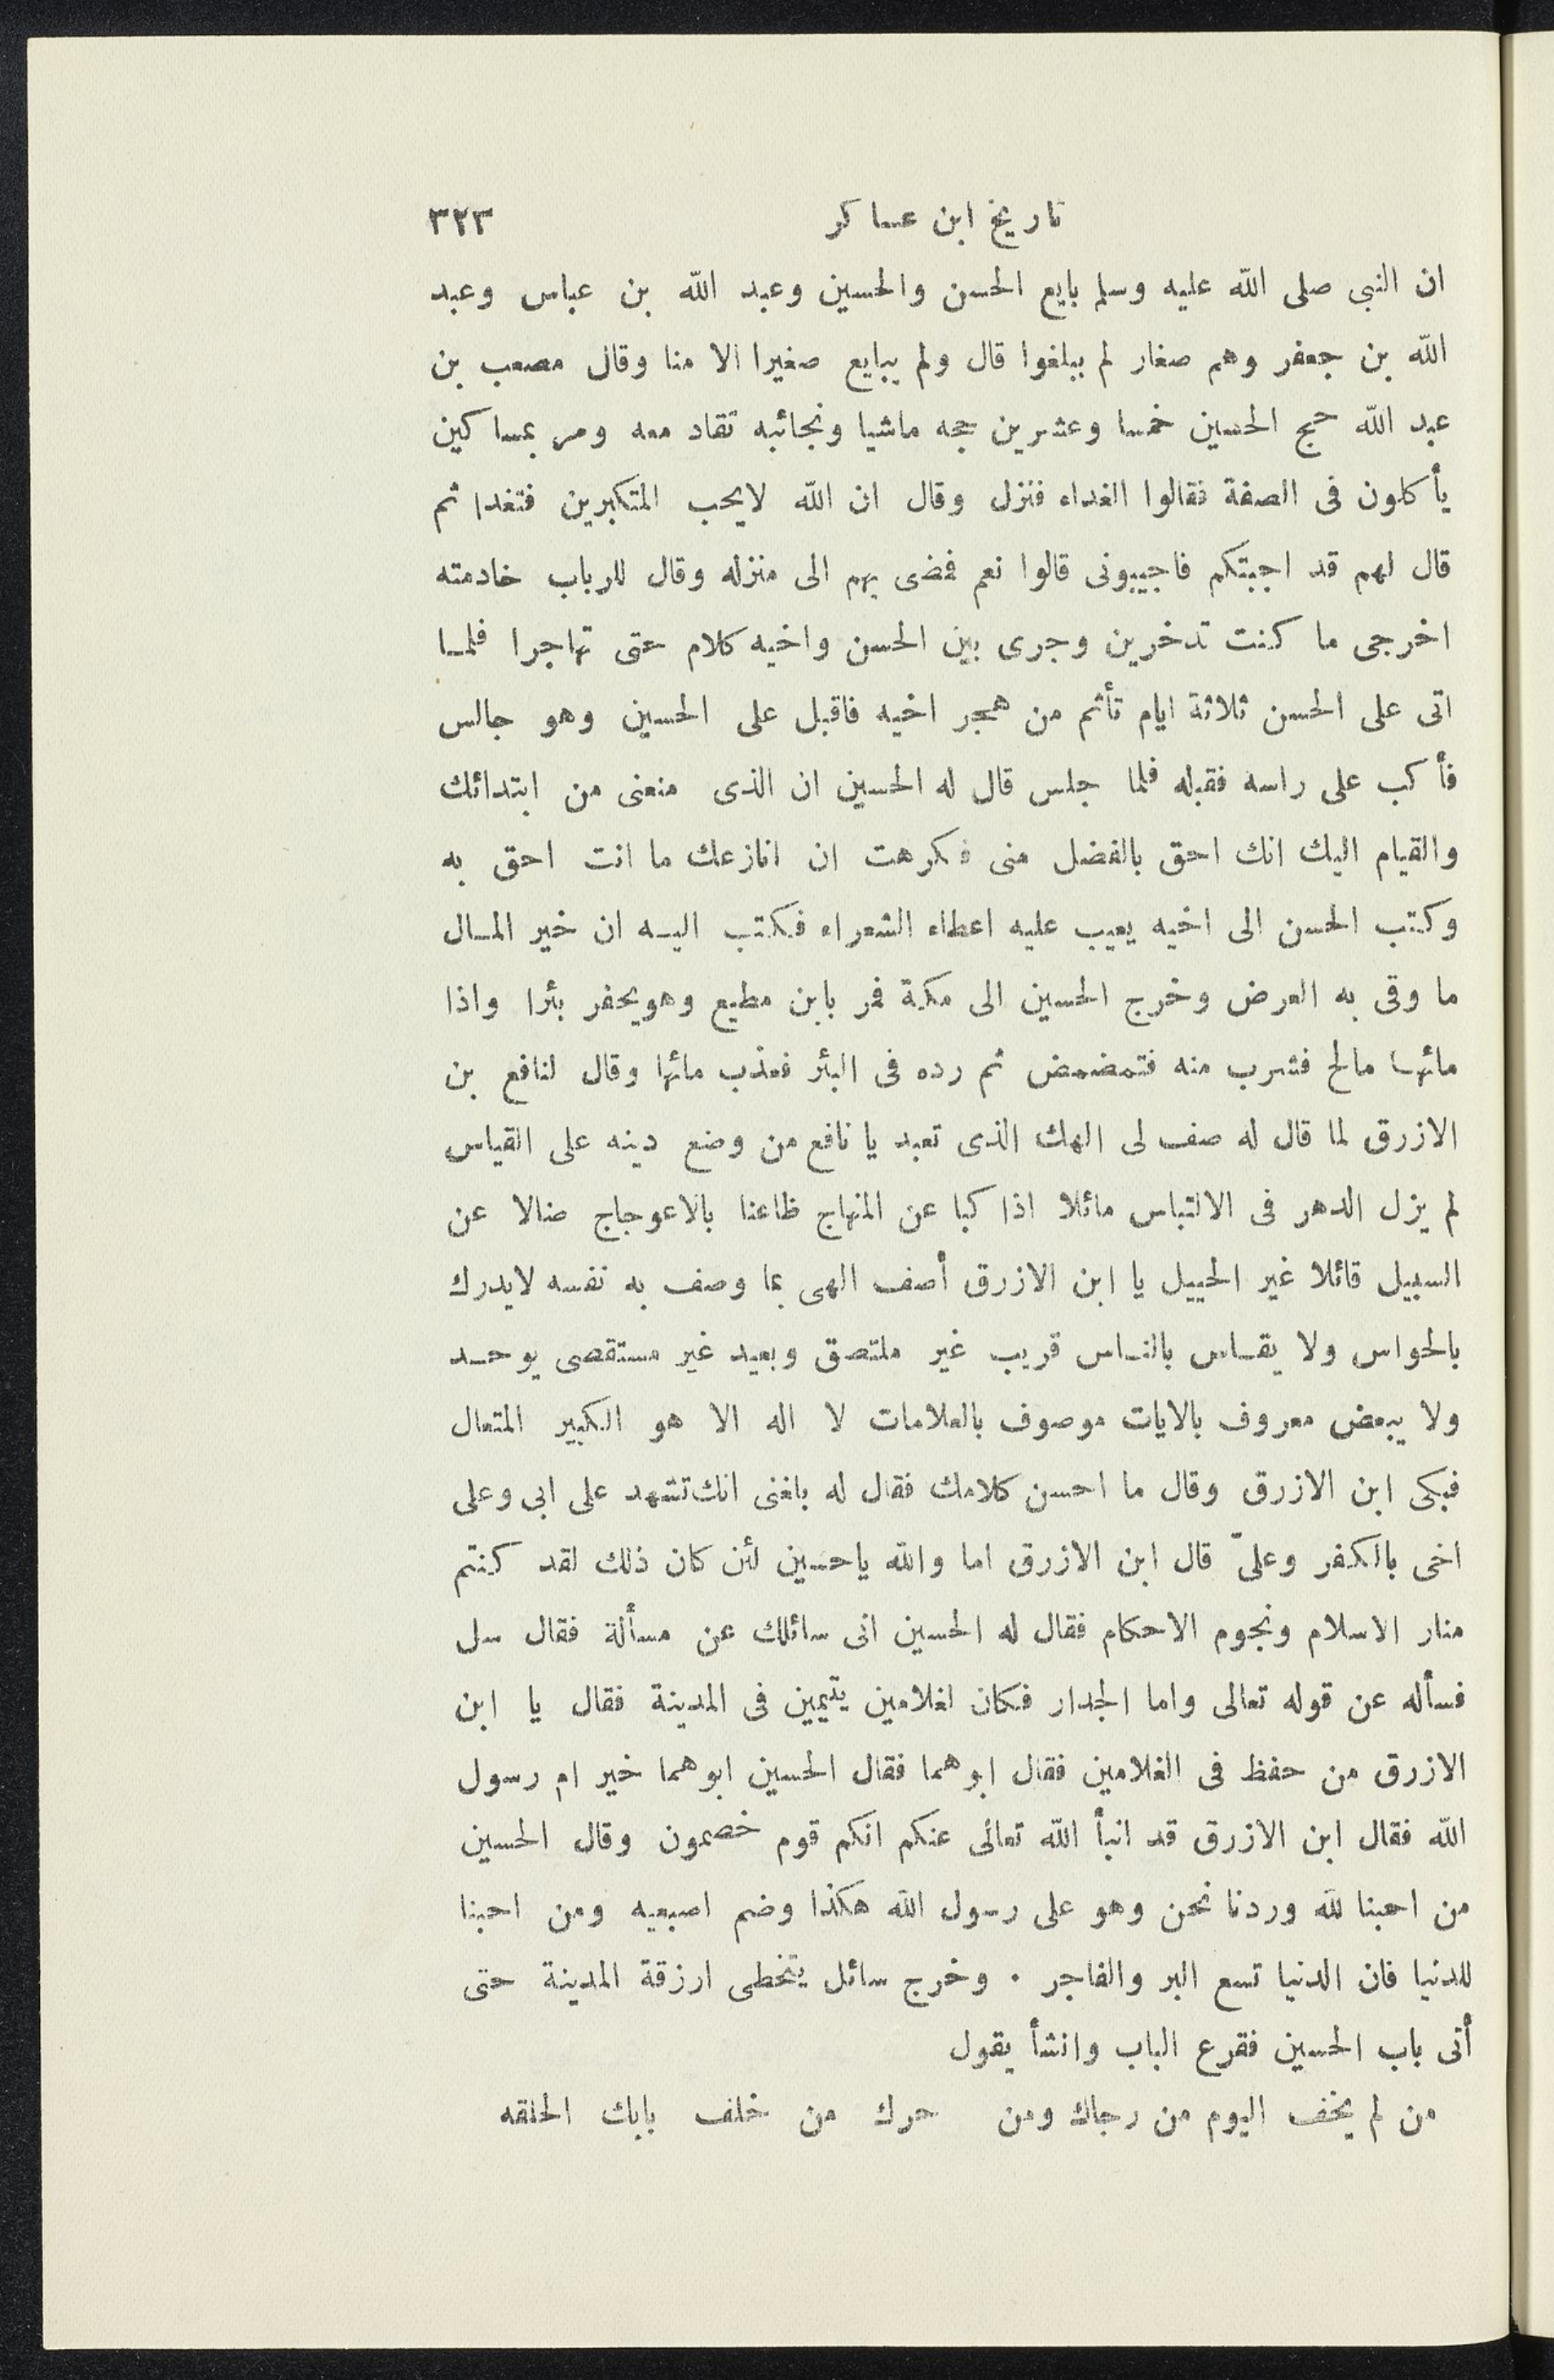 تاريخ ابن عساكر ٣٢٣
ان النبى صلى الله عليه وسلم بايع الحسن والحسين وعبد الله بن عباس وعبد
الله بن جعفر وهم صغار لم يبلغوا قال ولم يبايع صغيرا الا منا وقال مصعب بن
عبد الله حج الحسين خمسا وعشرين حجه ماشيا ونجائبه تقاد معه ومر بمساكين
يأكلون فى الصفة فقالوا الغداء فنزل وقال ان الله لايحب المتكبرين فتغدا ثم
قال لهم قد اجبتكم فاجيبونى قالوا نعم فمضى بهم الى منزله وقال للرباب خادمته
اخرجى ما كنت تدخرين وجرى بين الحسن واخيه كلام حتى تهاجرا فلما
اتى على الحسن ثلاثة ايام تأثم من هجر اخيه فاقبل على الحسين وهو جالس
فأكب على راسه فقبله فلما جلس قال له الحسين ان الذى منعنى من ابتدائك
والقيام اليك انك احق بالفضل منى فكرهت ان انازعك ما انت احق به
وكتب الحسن الى اخيه يعيب عليه اعطاء الشعراء فكتب اليه ان خير المال
ما وقى به العرض وخرج الحسين الى مكة فمر بابن مطيع وهويحفر بئرا واذا
مائها مالح فشرب منه فتمضمض ثم رده فى البئر فعذب مائها وقال لنافع بن
الازرق لما قال له صف لى الهك الذى تعبد يا نافع من وضع دينه على القياس
لم يزل الدهر فى الالتباس مائلا اذا كبا عن المنهاج ظاعنا بالاعوجاج ضالا عن
السبيل قائلا غير الجميل يا ابن الازرق أصف الهى بما وصف به نفسه لايدرك
بالحواس ولا يقاس بالناس قريب غير ملتصق وبعيد غير مستقصى يوحد
ولا يبعض معروف بالايات موصوف بالعلامات لا اله الا هو الكبير المتعال
فبكى ابن الازرق وقال ما احسن كلامك فقال له بلغنى انك تشهد على ابى وعلى
اخى بالكفر وعلىّ قال ابن الازرق اما والله ياحسين لئن كان ذلك لقد كنتم
منار الاسلام ونجوم الاحكام فقال له الحسين انى سائلك عن مسألة فقال سل
فسأله عن قوله تعالى واما الجدار فكان لغلامين يتيمين فى المدينة فقال يا ابن
الازرق من حفظ فى الغلامين فقال ابوهما فقال الحسين ابوهما خير ام رسول
الله فقال ابن الازرق قد انبأ الله تعالى عنكم انكم قوم خصمون وقال الحسين
من احبنا لله وردنا نحن وهو على رسول الله هكذا وضم اصبعيه ومن احبنا
للدنيا فان الدنيا تسع البر والفاجر . وخرج سائل يتخطى ارزقة المدينة حتى
أتى باب الحسين فقرع الباب وانشأ يقول
من لم يخف اليوم من رجاك ومن حرك من خلف بابك الحلقه